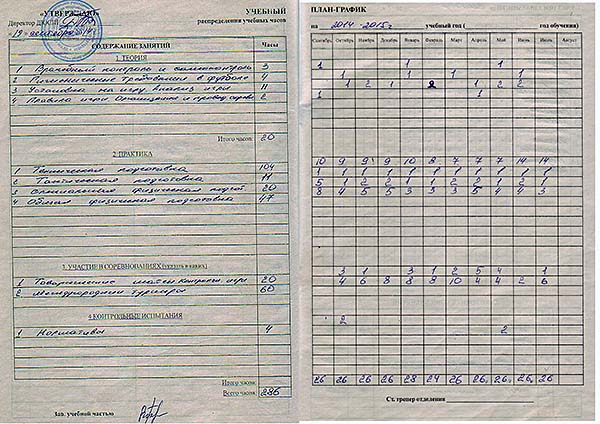 «УТВЕРЖДАЮ»
Директор ДЮСШ
УЧЕБНЫЙ
распределения учебных часов
СОДЕРЖАНИЕ ЗАНЯТИЙ Часы
1. ТЕОРИЯ
1 Врачебный контроль и самоконтроль 3
3 Установка на игру. Анализ игры 11
4 Правила игры. 2
Итого часов 20
2. ПРАКТИКА
1 Техническая подготовка 104
2 Тактическая подготовка
3 Специальная физическая подгот. 20
4 Общая физическая подготовка 47
3. УЧАСТИЕ В СОРЕВНОВАНИЯХ
1 Товарищеские игры 20
2 Международные турниры 60
4 КОНТРОЛЬНЫЕ ИСПЫТАНИЯ
1 Нормативы 4
Итого часов
Всего часов 286
Зав. учебной частью
ПЛАН-ГРАФИК
на 2014-2015г учебный год ( год обучения)
Сентябрь Октябрь Ноябрь Декабрь Январь Февраль Март Апрель Май Июнь Июль Август
1 1 1
1 1 1 1
1 2 1 2 1 2 2
1 1
10 9 9 9 10 8 7 7 7 14 14
1 1 1 1 1 1 1 1 1 1 1
5 1 2 2 1 1 1 2 1 2 1
8 4 5 5 3 3 3 5 4 4 3
3 1 3 1 2 5 4 1
4 6 8 8 8 10 4 4 2 6
2
2
26 26 26 26 28 24 26 26 26 26 26
Ст. тренер отделения